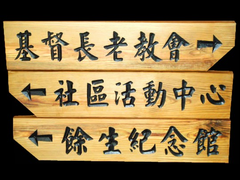 基督長老教會 →
← 社區活動中心
← 餘生紀念館